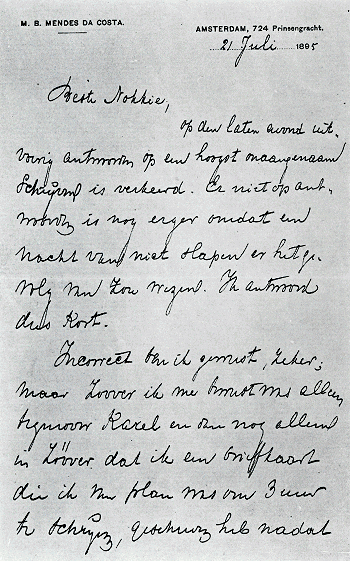 M. B. MENDES DA COSTA.
AMSTERDAM, 724 Prinsengracht.
21 Juli 1895
Beste Nokkie,
op den laten avond uit-
voerig antwoorden op een hoogst onaangenaam
schrijven is verkeerd. Er niet op ant-
woorden is nog erger omdat een
nacht van niet slapen er het ge-
volg van zou wezen. Ik antwoord
dus kort.
Incorrect ben ik geweest, zeker;
maar zoover ik me bewust was alleen
tegenover Karel en dan nog alleen
in zóóver dat ik een briefkaart
die ik van plan was om 3 uur
te schrijven, geschreven heb nadat